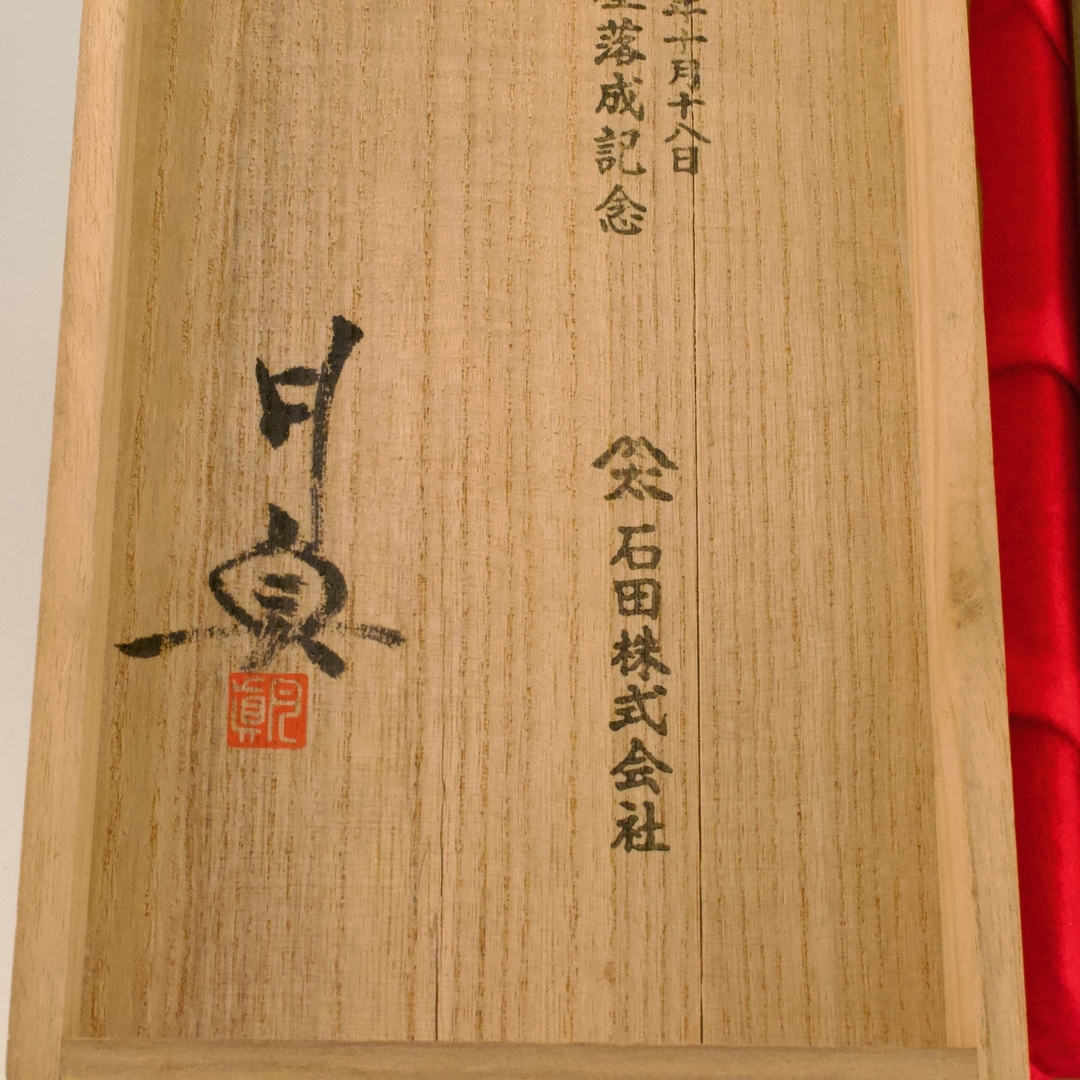 年十月十八日
落成記念
太 石田株式会社